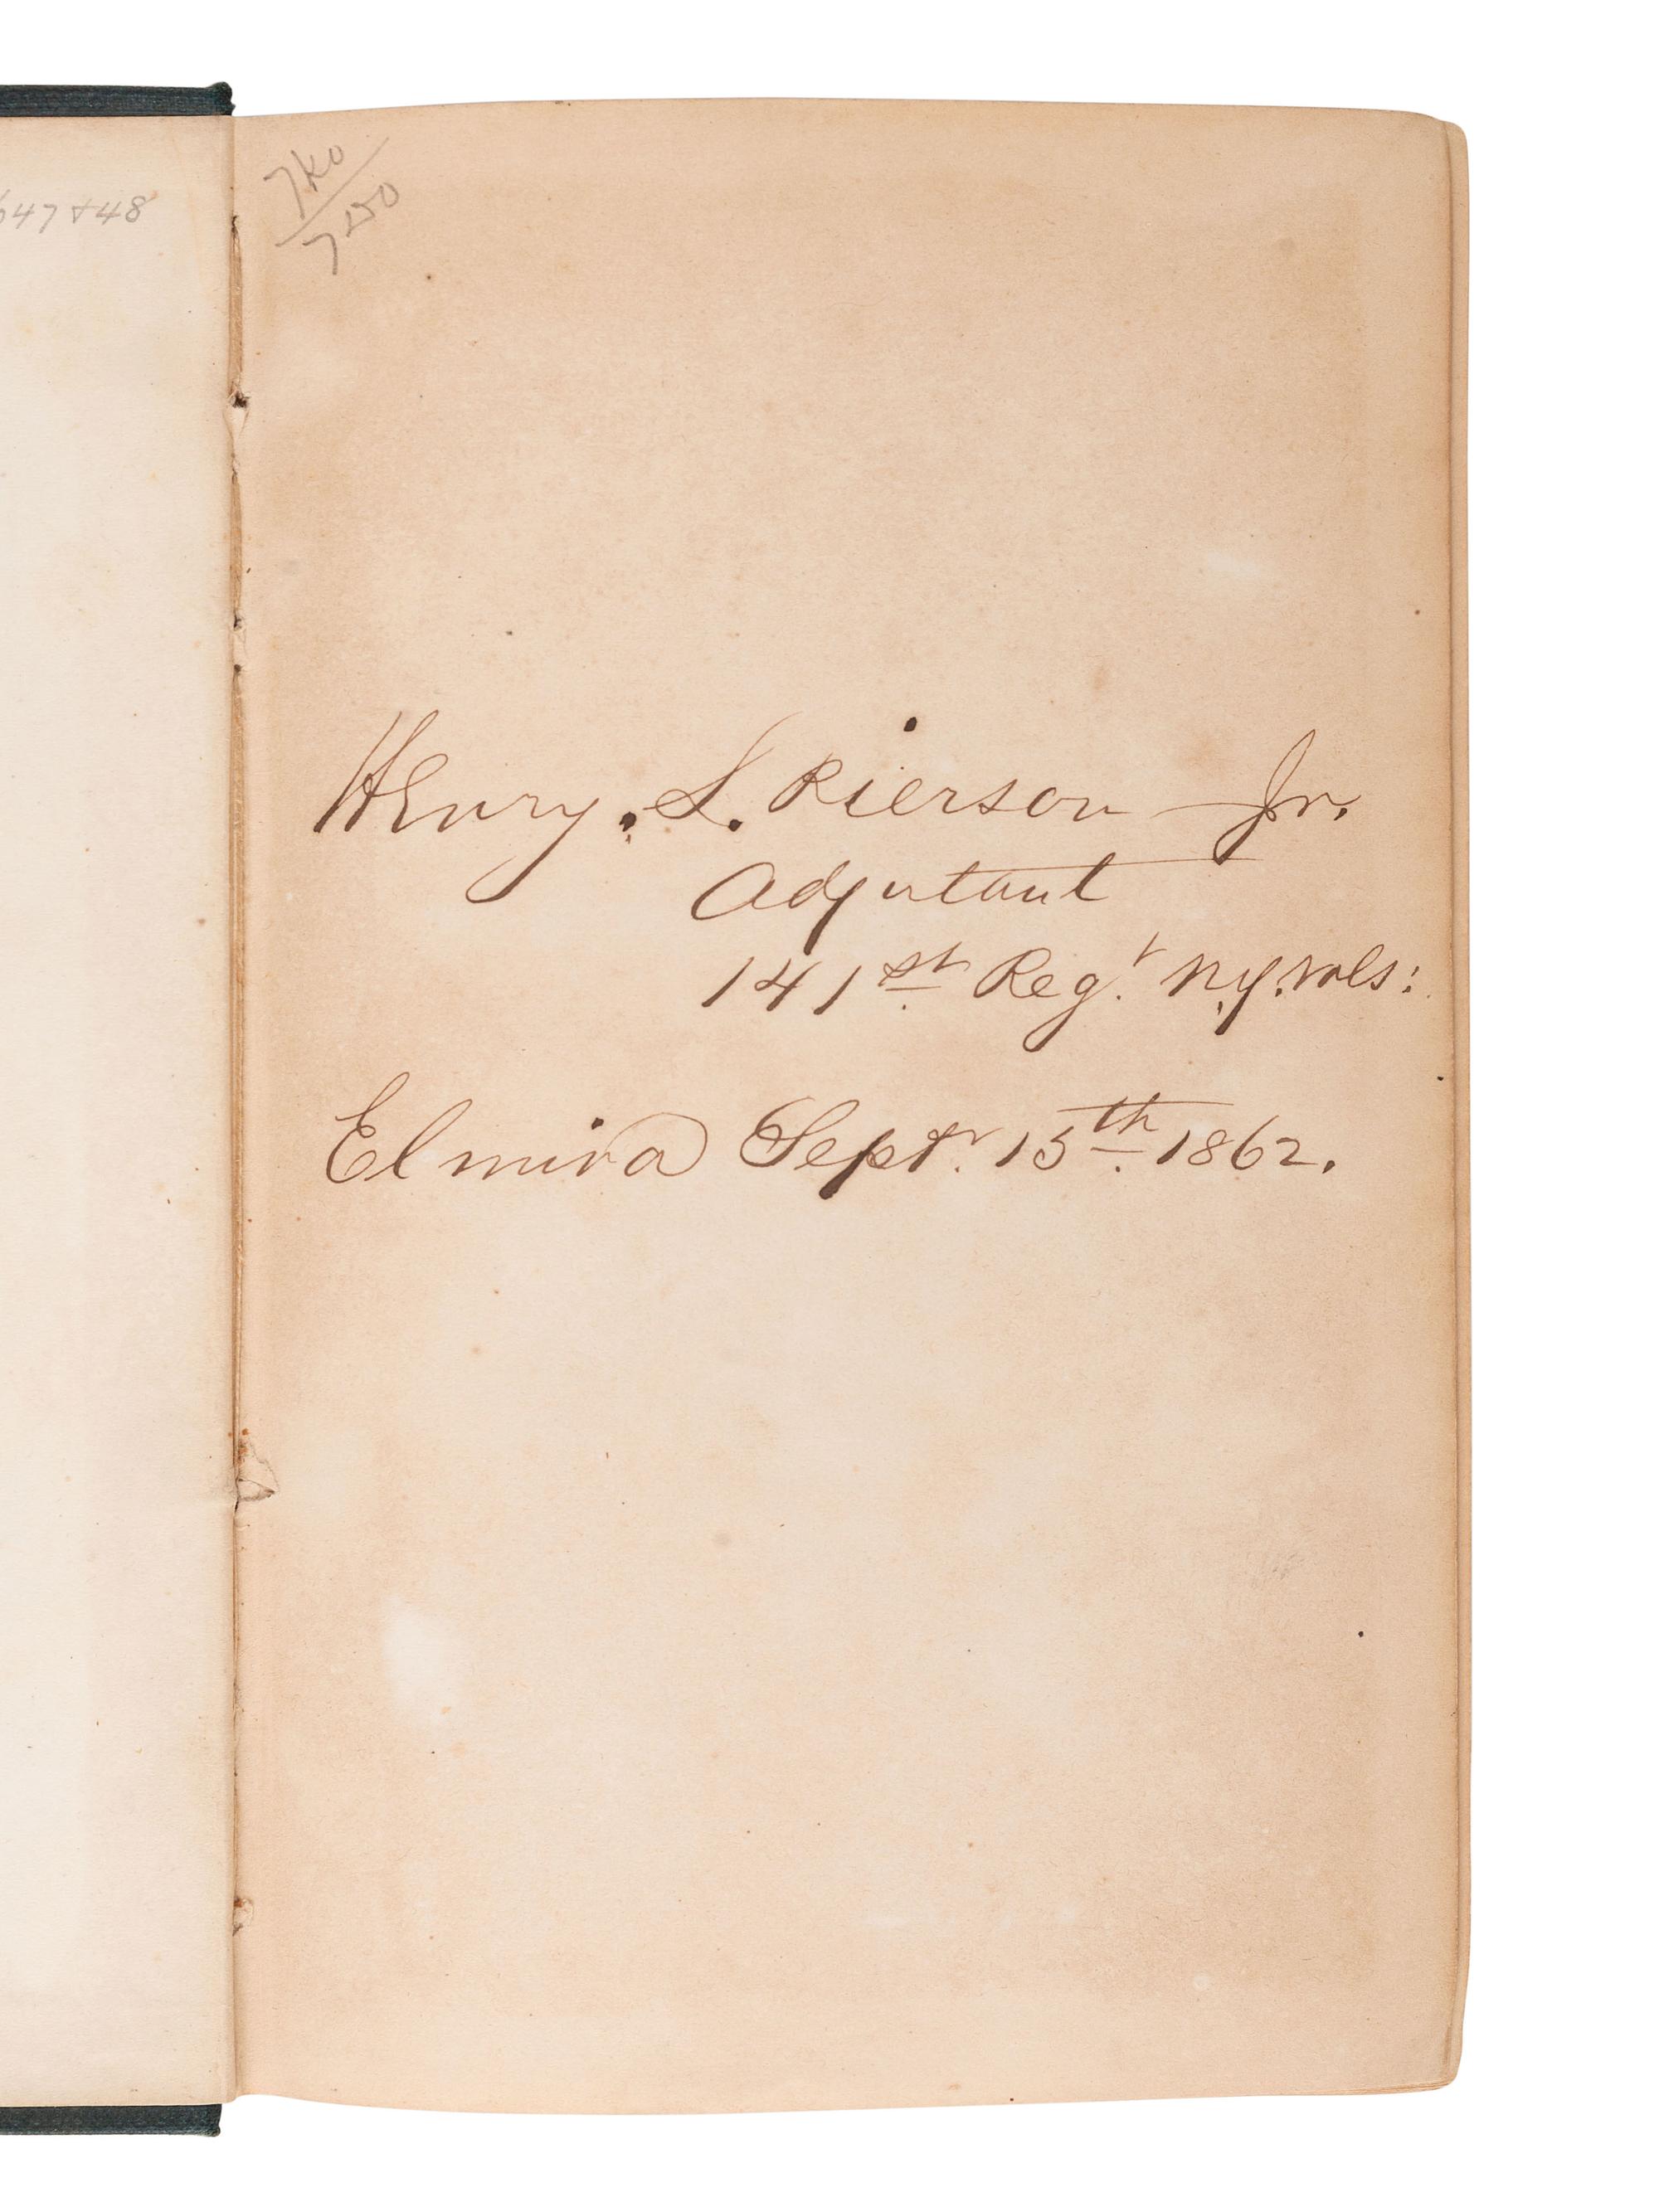 47 & 48
Henry. S. Pierson Jr.
Adjutant
141st Regt. N.Y. Vols:
Elmira Septr. 15th. 1862.